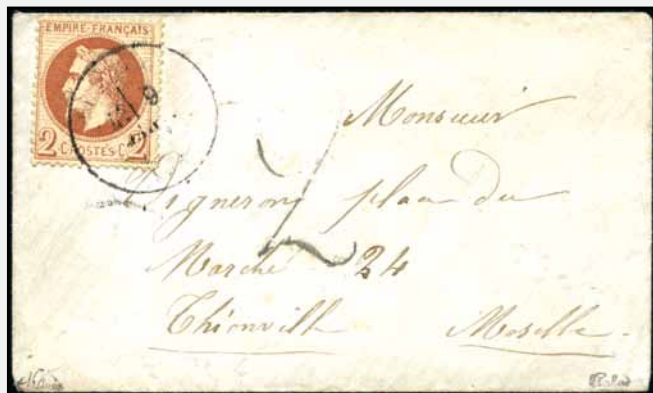 EMPIRE FRANÇAIS
2 C POSTES C 2
9
Monsieur
Vigneron place du
Marché 24
Thionville Moselle